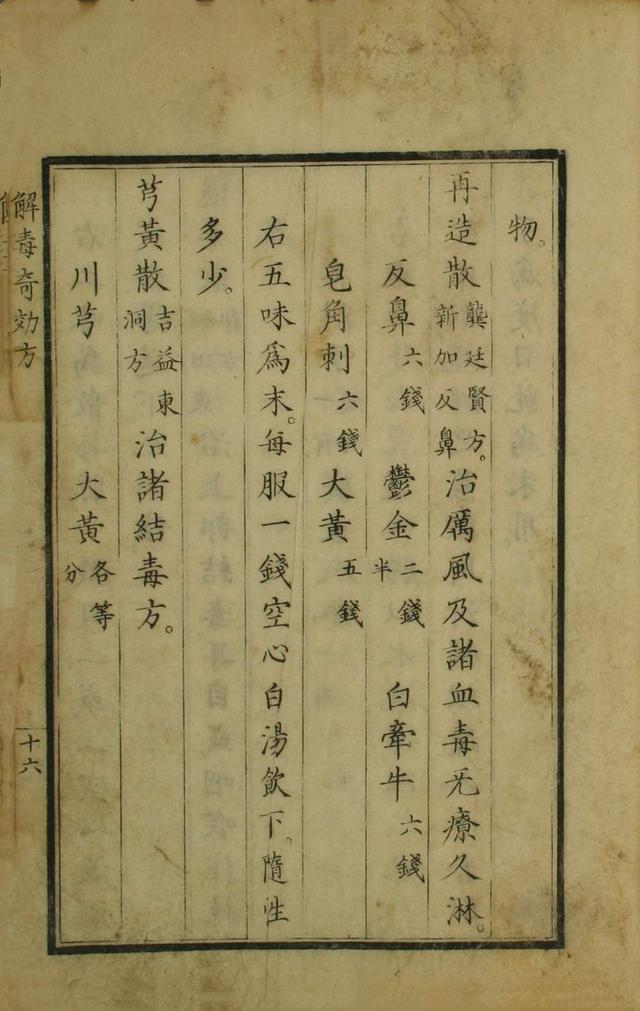 物。
再造散龔廷賢方。新加反鼻治厲風及諸血毒无療久淋。
反鼻六錢 鬱金二錢半 白牽牛六錢
皂角刺六錢 大黃五錢
右五味爲末。每服一錢空心白湯飲下。隨性
多少。
芎黃散吉益東洞方治諸結毒方。
川芎 大黃各等分
解毒奇効方
十六